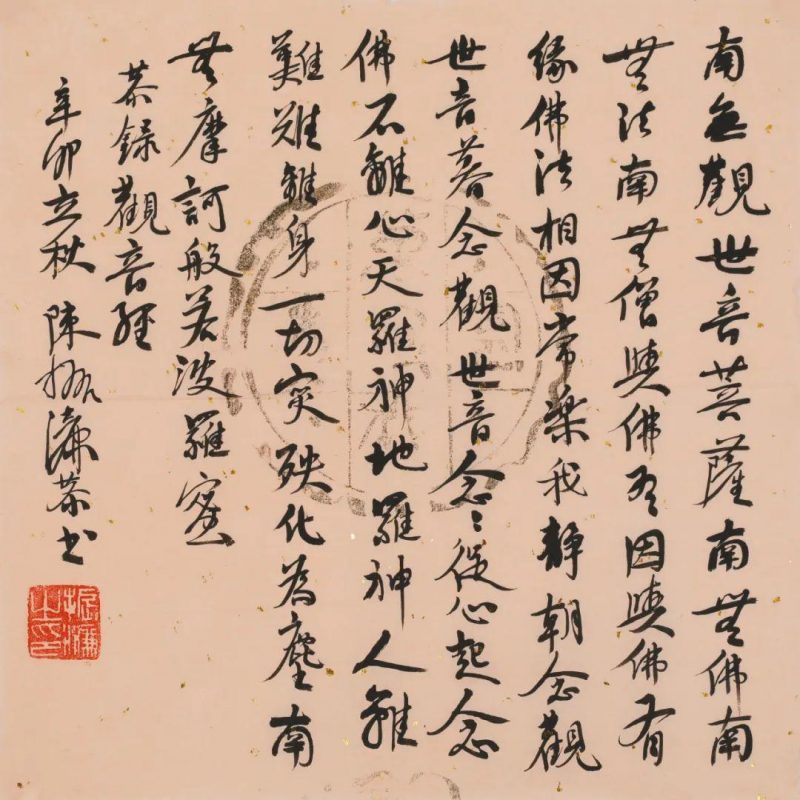 南無觀世音菩薩南無佛南
無法南無僧與佛有因與佛有
緣佛法相因常樂我靜朝念觀
世音暮念觀世音念々從心起念
佛不離心天羅神地羅神人離
難難離身一切灾殃化為塵南
無摩訶般若波羅蜜
恭錄觀音經
辛卯立秋 陳振濂恭書
振濂之印